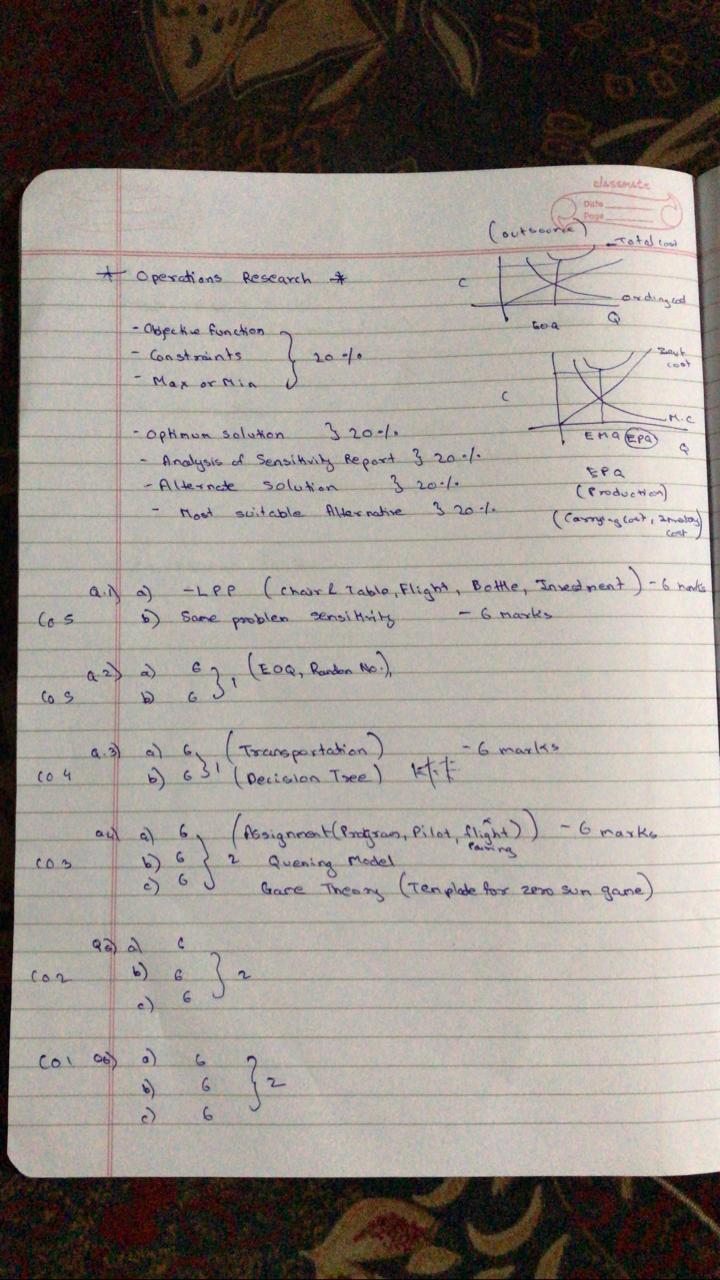 classmate
Date
Page
(outsource)
Total cost
C
ordering cost
EOQ
Q
* Operations Research *
- Objective function
- Constraints } 20 %
- Max or Min
C
cost
M.C
EMQ (EPQ)
Q
EPQ
(Production)
(Carrying cost,
cost)
- Optimum solution } 20 %.
- Analysis of Sensitivity Report } 20 %.
- Alternate Solution } 20 %.
- Most suitable Alternative } 20 %.
Q.1) a) - LPP (Chair & Table, Flight, Bottle, Investment) - 6 marks
CO 5 b) Same problem sensitivity - 6 marks
Q.2) a) 6 } 1 (EOQ, Random No.),
CO 5 b) 6
Q.3) a) 6 } 1 (Transportation) - 6 marks
CO 4 b) 6 (Decision Tree)
Q4) a) 6 (Assignment (Program, Pilot, flight)) - 6 marks
Pairing
CO 3 b) 6 } 2 Queuing Model
c) 6 Game Theory (Template for zero sum game)
Q5) a) 6
CO 2 b) 6 } 2
c) 6
CO 1 Q6) a) 6
b) 6 } 2
c) 6